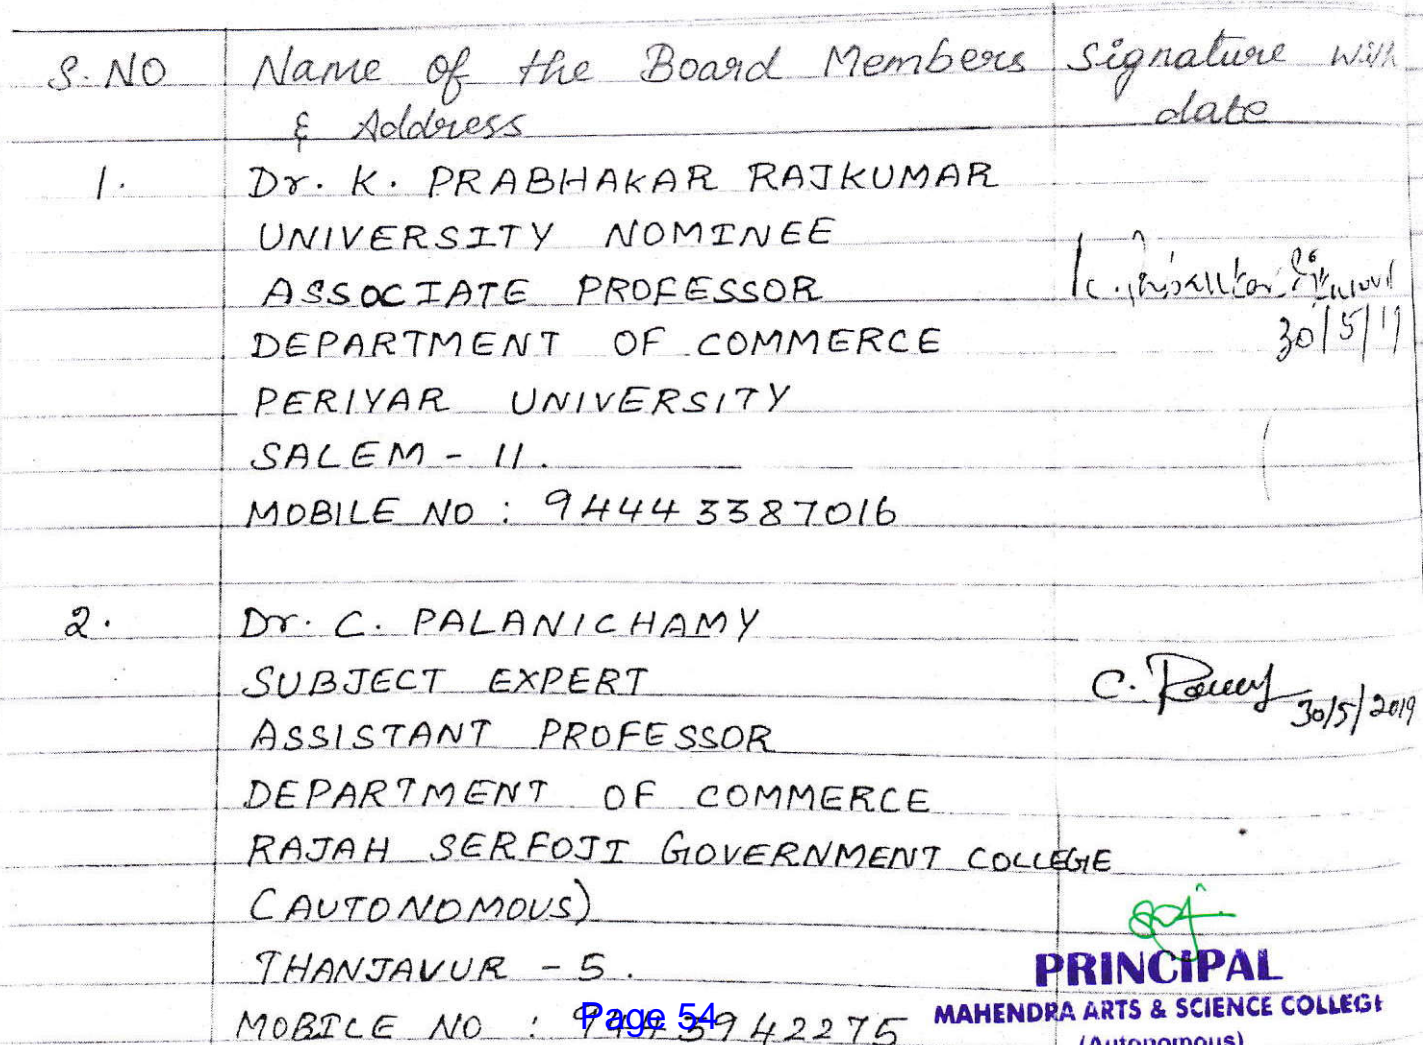 S.NO Name of the Board Members Signature with
& Address date
1. Dr. K. PRABHAKAR RAJKUMAR
UNIVERSITY NOMINEE
ASSOCIATE PROFESSOR
DEPARTMENT OF COMMERCE 30/5/19
PERIYAR UNIVERSITY
SALEM - 11.
MOBILE NO : 94443387016
2. Dr. C. PALANICHAMY
SUBJECT EXPERT C.
30/5/2019
ASSISTANT PROFESSOR
DEPARTMENT OF COMMERCE
RAJAH SERFOJI GOVERNMENT COLLEGE
(AUTONOMOUS)
THANJAVUR - 5.
PRINCIPAL
MOBILE NO :
Page 54
MAHENDRA ARTS & SCIENCE COLLEGE
(Autonomous)